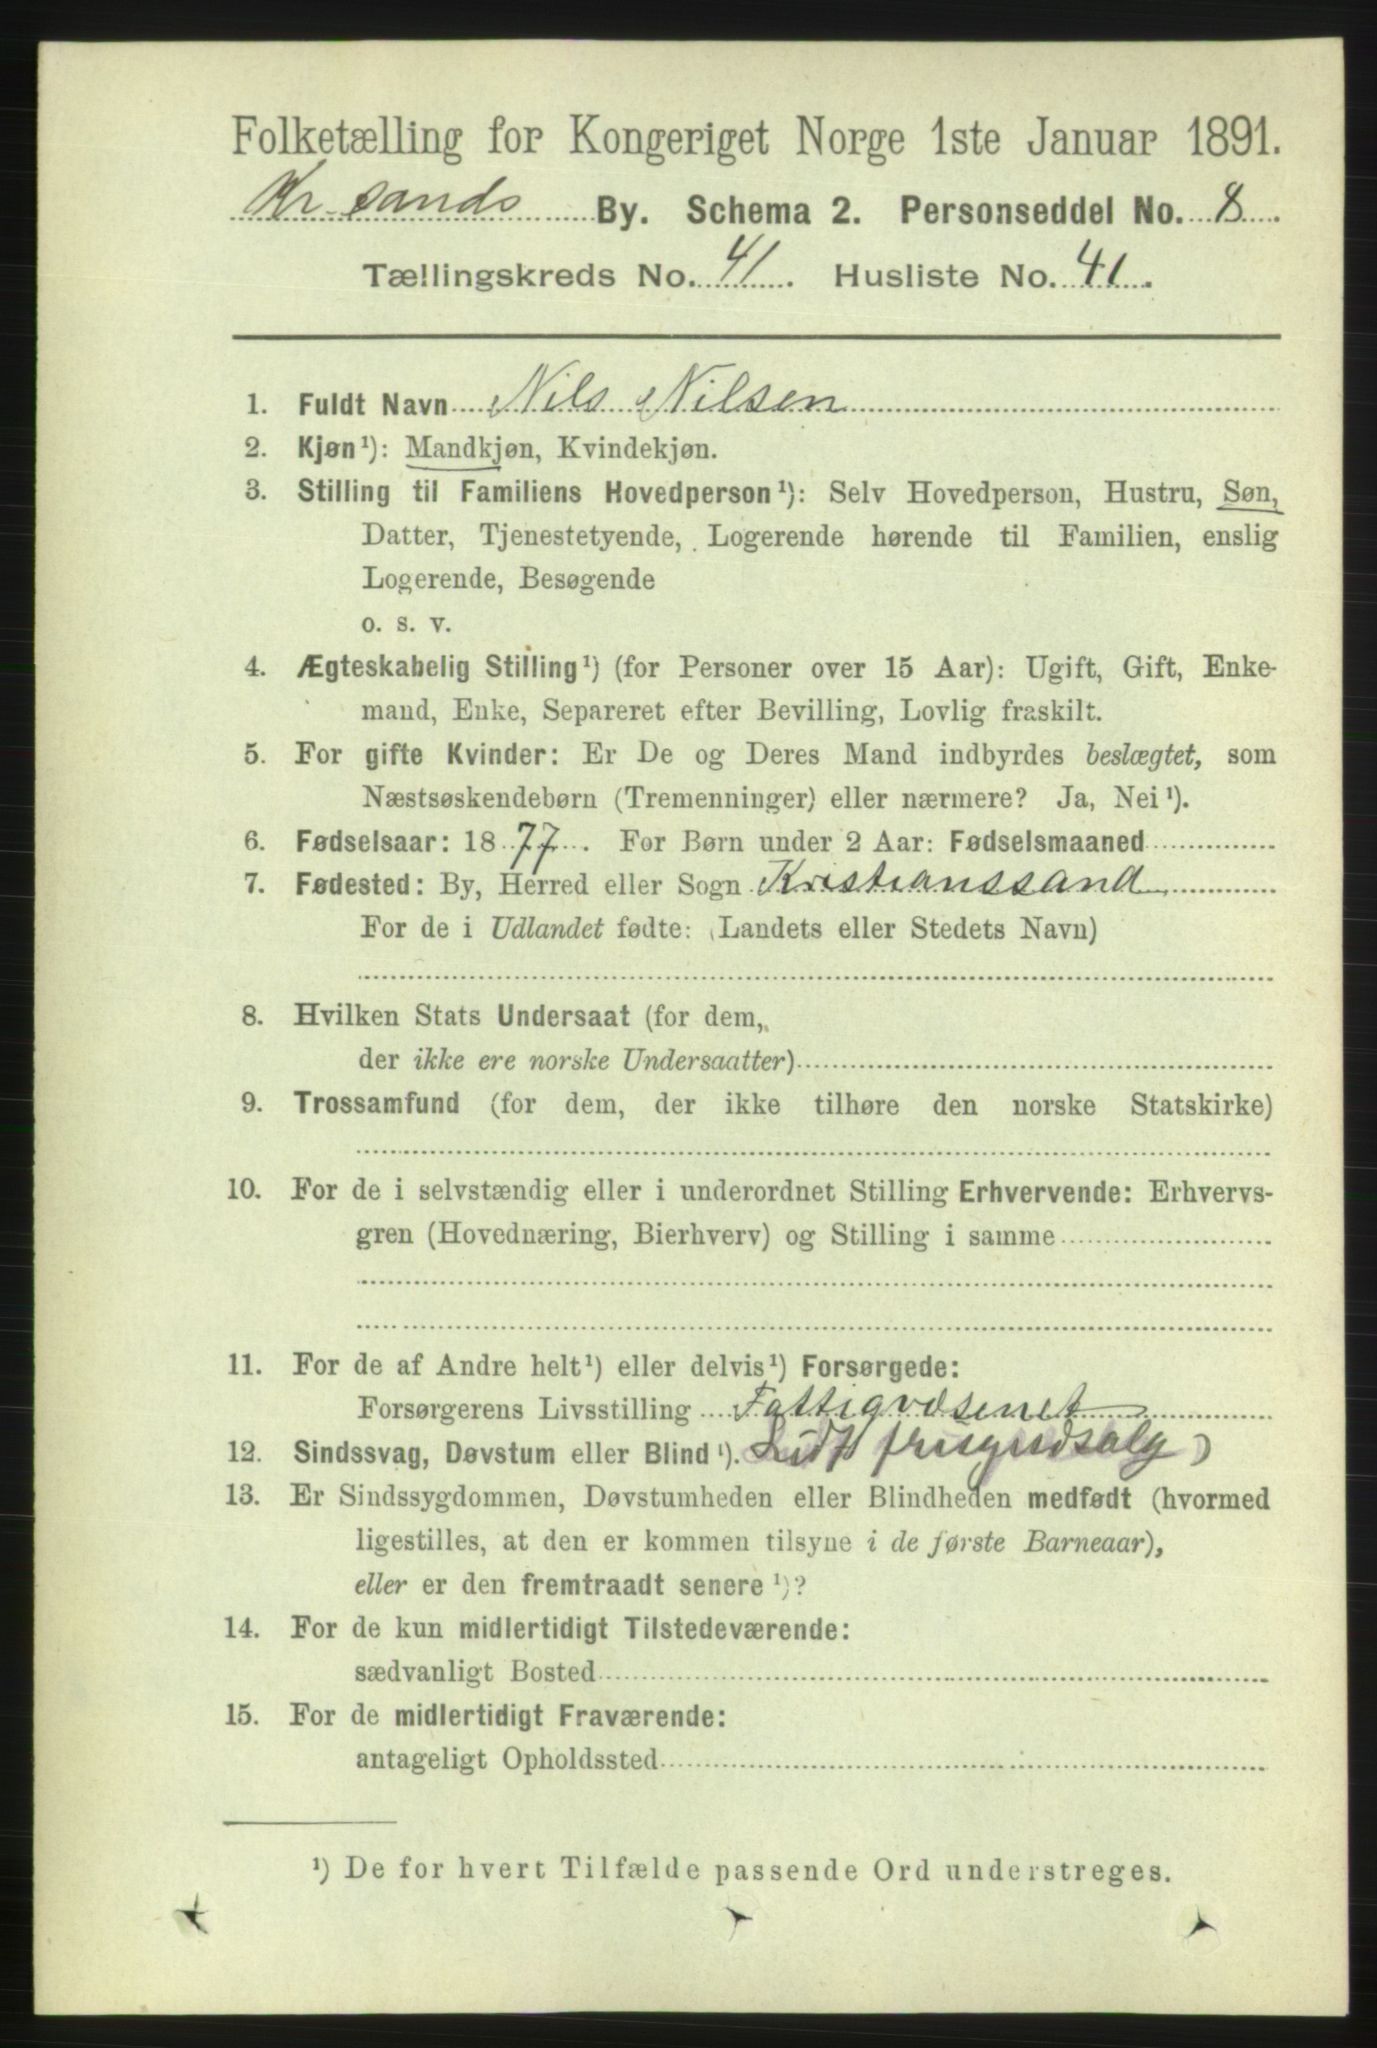 Folketælling for Kongeriget Norge 1ste Januar 1891.
Kr.sands By. Schema 2. Personseddel No. 8.
Tællingskreds No. 41. Husliste No. 41.
1. Fuldt Navn Nils Nilsen
2. Kjøn¹): Mandkjøn, Kvindekjøn.
3. Stilling til Familiens Hovedperson¹): Selv Hovedperson, Hustru, Søn,
Datter, Tjenestetyende, Logerende hørende til Familien, enslig
Logerende, Besøgende
o. s. v.
4. Ægteskabelig Stilling¹) (for Personer over 15 Aar): Ugift, Gift, Enke-
mand, Enke, Separeret efter Bevilling, Lovlig fraskilt.
5. For gifte Kvinder: Er De og Deres Mand indbyrdes beslægtet, som
Næstsøskendebørn (Tremenninger) eller nærmere? Ja, Nei¹).
6. Fødselsaar: 1877. For Børn under 2 Aar: Fødselsmaaned
7. Fødested: By, Herred eller Sogn Kristianssand
For de i Udlandet fødte: (Landets eller Stedets Navn)
8. Hvilken Stats Undersaat (for dem,
der ikke ere norske Undersaatter)
9. Trossamfund (for dem, der ikke tilhøre den norske Statskirke)
10. For de i selvstændig eller i underordnet Stilling Erhvervende: Erhvervs-
gren (Hovednæring, Bierhverv) og Stilling i samme
11. For de af Andre helt¹) eller delvis¹) Forsørgede:
Forsørgerens Livsstilling Fattigvæsenet
12. Sindssvag, Døvstum eller Blind¹).
13. Er Sindssygdommen, Døvstumheden eller Blindheden medfødt (hvormed
ligestilles, at den er kommen tilsyne i de første Barneaar),
eller er den fremtraadt senere¹)?
14. For de kun midlertidigt Tilstedeværende:
sædvanligt Bosted
15. For de midlertidigt Fraværende:
antageligt Opholdssted
¹) De for hvert Tilfælde passende Ord understreges.